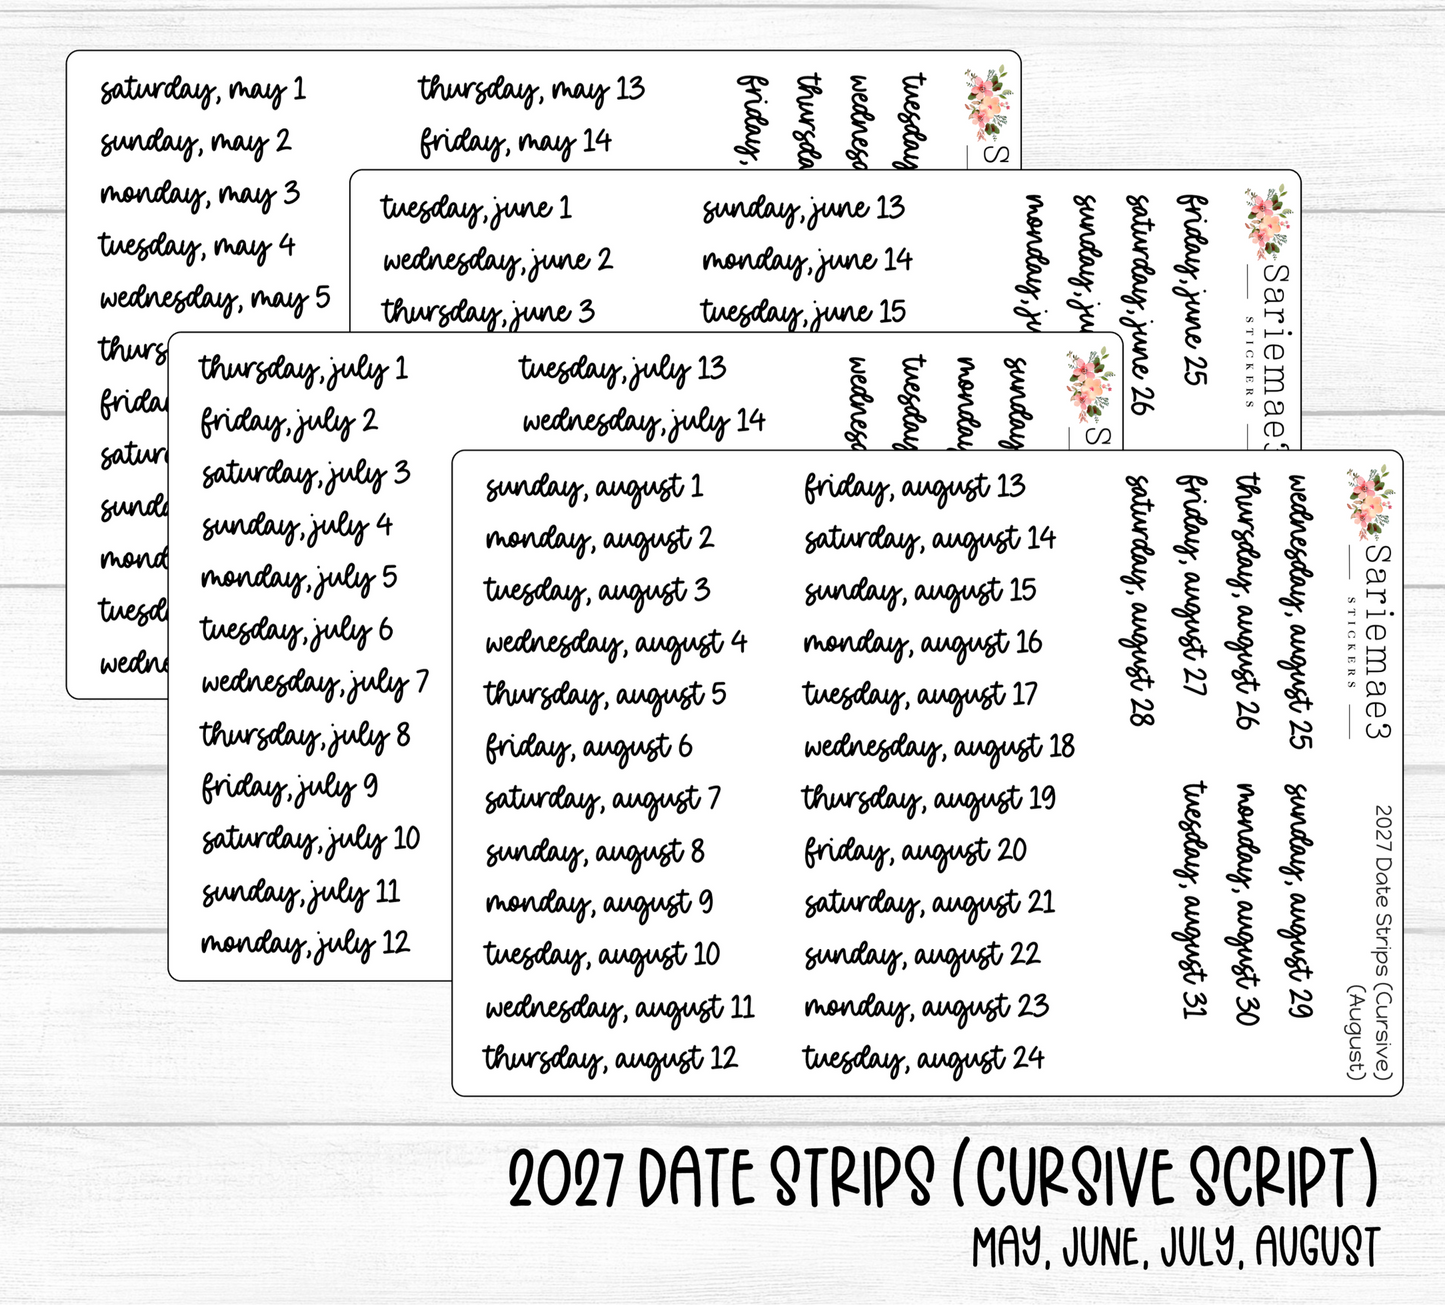 saturday, may 1
sunday, may 2
monday, may 3
tuesday, may 4
wednesday, may 5
thurs
frida
satur
sund
mond
tuesd
wedne
thursday, may 13
friday, may 14
friday,
thursda
wednesd
tuesday
S
tuesday, june 1
wednesday, june 2
thursday, june 3
sunday, june 13
monday, june 14
tuesday, june 15
monday, ju
sunday, ju
saturday, june 26
friday, june 25
Sariemae3
STICKERS
thursday, july 1
friday, july 2
saturday, july 3
sunday, july 4
monday, july 5
tuesday, july 6
wednesday, july 7
thursday, july 8
friday, july 9
saturday, july 10
sunday, july 11
monday, july 12
tuesday, july 13
wednesday, july 14
wednesd
tuesday
monday
sunday
S
sunday, august 1
monday, august 2
tuesday, august 3
wednesday, august 4
thursday, august 5
friday, august 6
saturday, august 7
sunday, august 8
monday, august 9
tuesday, august 10
wednesday, august 11
thursday, august 12
friday, august 13
saturday, august 14
sunday, august 15
monday, august 16
tuesday, august 17
wednesday, august 18
thursday, august 19
friday, august 20
saturday, august 21
sunday, august 22
monday, august 23
tuesday, august 24
wednesday, august 25
thursday, august 26
friday, august 27
saturday, august 28
sunday, august 29
monday, august 30
tuesday, august 31
Sariemae3
STICKERS
2027 Date Strips (Cursive)
(August)
2027 DATE STRIPS (CURSIVE SCRIPT)
MAY, JUNE, JULY, AUGUST